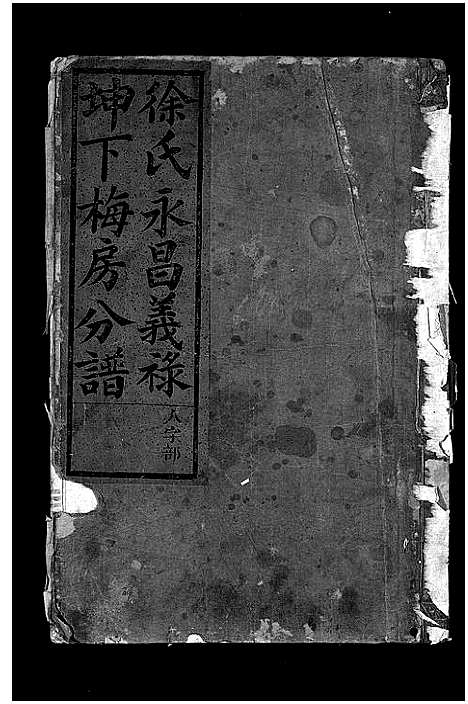 徐氏永昌義祿
坤下梅房分譜
人字部